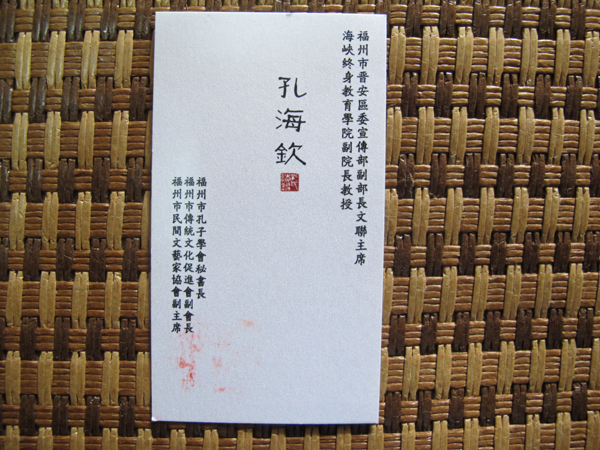 福州市晋安區委宣傳部副部長文聯主席
海峽終身教育學院副院長教授
孔海欽
福州市孔子學會秘書長
福州市傳統文化促進會副會長
福州市民間文藝家協會副主席